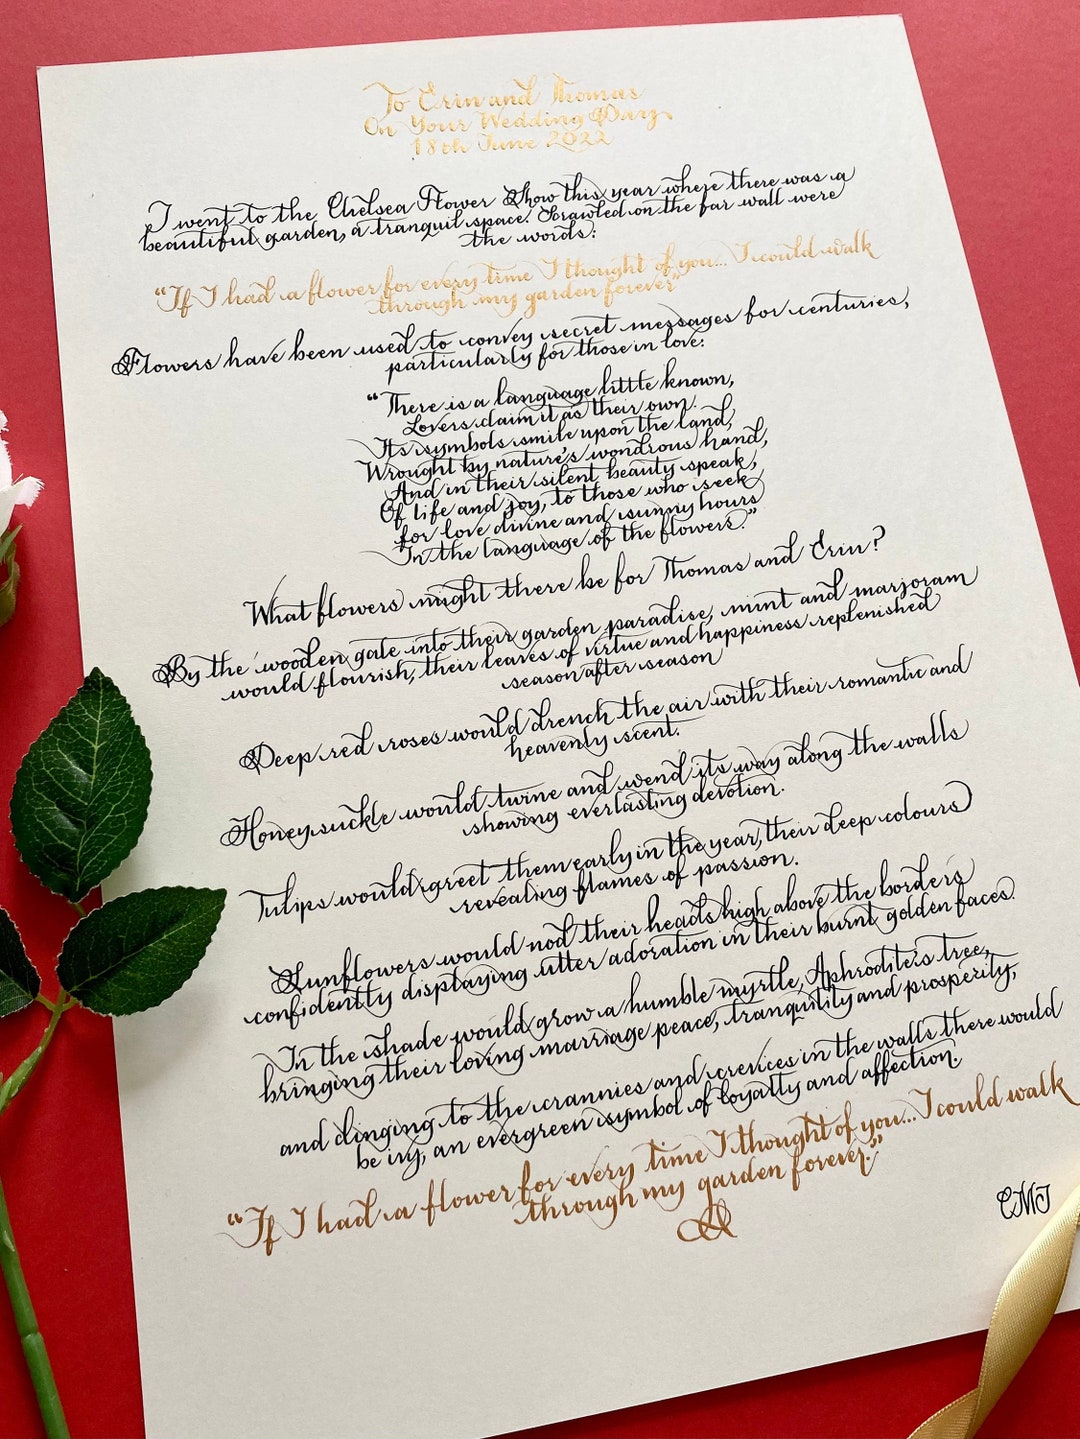 To Erin and Thomas
On Your Wedding Day
18th June 2022
I went to the Chelsea Flower Show this year where there was a
beautiful garden, a tranquil space. Scrawled on the far wall were
the words:
"If I had a flower for every time I thought of you... I could walk
through my garden forever"
Flowers have been used to convey secret messages for centuries,
particularly for those in love:
"There is a language little known,
Lovers claim it as their own.
Its symbols smile upon the land,
Wrought by nature's wondrous hand,
And in their silent beauty speak,
Of life and joy, to those who seek
for love divine and sunny hours
In the language of the flowers."
What flowers might there be for Thomas and Erin?
By the wooden gate into their garden paradise, mint and marjoram
would flourish, their leaves of virtue and happiness replenished
season after season
Deep red roses would drench the air with their romantic and
heavenly scent.
Honeysuckle would twine and wend its way along the walls
showing everlasting devotion.
Tulips would greet them early in the year, their deep colours
revealing flames of passion.
Sunflowers would nod their heads high above the borders
confidently displaying utter adoration in their burnt golden faces.
In the shade would grow a humble myrtle, Aphrodite's tree,
bringing their loving marriage peace, tranquility and prosperity,
and clinging to the crannies and crevices in the walls there would
be ivy, an evergreen symbol of loyalty and affection.
"If I had a flower for every time I thought of you... I could walk
through my garden forever."
CMJ